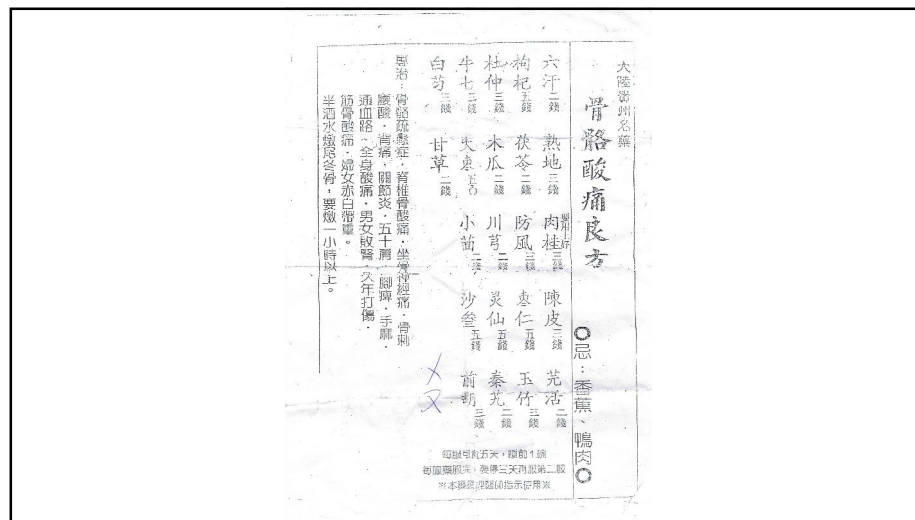 大陸貴州名藥
骨骼酸痛良方 ○忌：香蕉、鴨肉○
六汗二錢 熟地三錢 肉桂三錢 陳皮二錢 羌活二錢
枸杞五錢 茯苓二錢 防風三錢 棗仁五錢 玉竹三錢
杜仲三錢 木瓜二錢 川芎二錢 灵仙五錢 秦艽二錢
牛七三錢 大棗五个 小茴二錢 沙參五錢 前胡三錢
白芍三錢 甘草二錢
專治：骨骼疏鬆症・脊椎骨酸痛・坐骨神經痛・骨刺
腰酸・背痛・關節炎・五十肩・腳痺・手麻・
通血路・全身酸痛・男女敗腎・久年打傷・
筋骨酸痛・婦女赤白帶
半酒水燉尾冬骨，要燉一小時以上。
五天，睡前1碗
每服藥服完，要停三天再服第二服